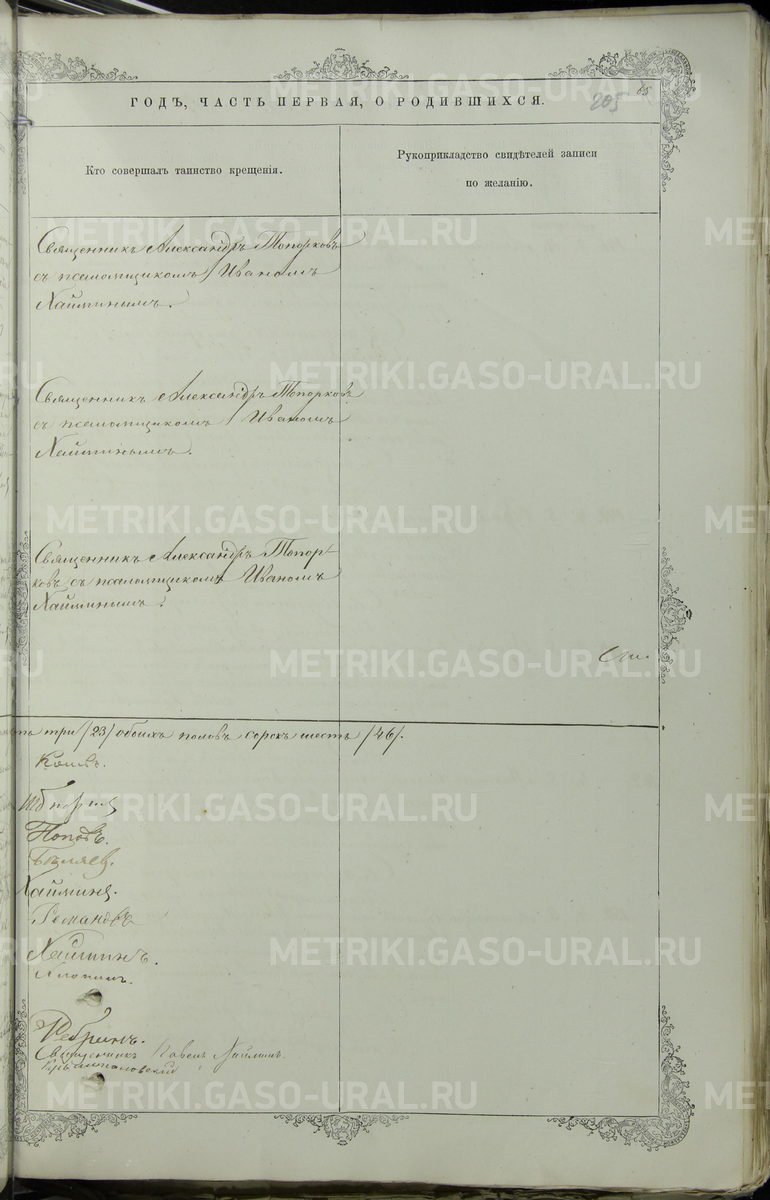 ГОДЪ, ЧАСТЬ ПЕРВАЯ, О РОДИВШИХСЯ.
205
Кто совершалъ таинство крещенія.
Рукоприкладство свидѣтелей записи
по желанію.
Священникъ Александръ Топорковъ
съ псаломщикомъ Иваномъ
Хайминымъ.
Священникъ Александръ Топорковъ
съ псаломщикомъ Иваномъ
Хайминымъ.
Священникъ Александръ Топор-
ковъ съ псаломщикомъ Иваномъ
Хайминымъ.
три /23/ обоихъ половъ сорокъ шесть /46/.
Поповъ.
Бѣляевъ.
Хайминъ.
Романовъ
Хайминъ.
Ребринъ.
Священникъ Павелъ Хайминъ.
METRIKI.GASO-URAL.RU